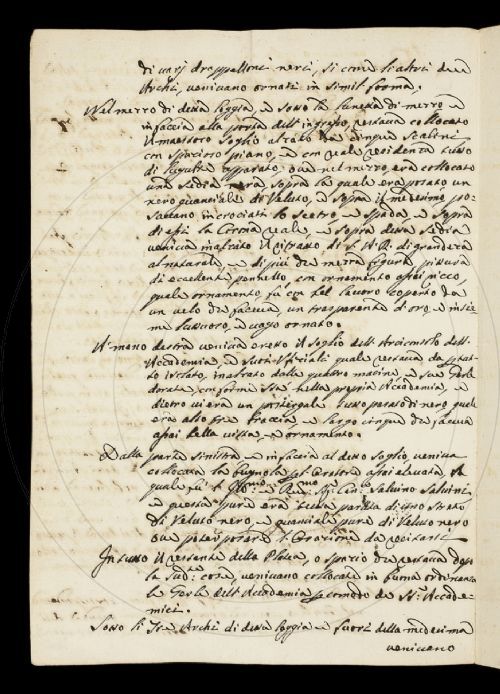 di varj drappelloni neri, si come li altri due
Archi, venivano ornati in simil forma.
Nel mezzo di detta loggia, e sotto la lunetta di mezzo e
in faccia alla porta dell' ingresso, restava collocato
il maestoso Soglio alzato da cinque Scalini
con spazioso piano, e con reale residenza tutto
di lugubre apparato, ove nel mezzo era collocato
una Sedia nera sopra la quale era posato un
nero guanciale di Veluto, e sopra il medesimo po-
savano incrociati lo Scetro, e Spada, e sopra
di essi la Corona reale, e sopra detta Sedia
veniva inalzato il ritratto di S. A. R. di grandezza
al naturale, e di più di mezza figura pittura
di eccellente pennello, con ornamento assai ricco,
quale ornamento, fu con bel lavoro coperto da
un velo che faceva, un trasparente d'oro, e insie-
me luttuoso, e vago ornato.
A mano destra veniva eretto il Soglio dell' Arciconsolo dell'
Accademia, e suoi Ufiziali quale restava da
to isolato, inalzato dalle quattro macine, e sue Pale
dorate conforme stà nella propria Accademia, e
dietro vi era un postergale tutto parato di nero, quale
era alto tre braccia, e largo cinque che faceva
assai bella vista, e ornamento.
Dalla parte sinistra, e in faccia al detto soglio, veniva
collocata la Bugnola p l'Oratore assai elevata, il
quale fù l' Ill:mo e Rev:mo Sig: Can: Salvino Salvini
e questa pure era tutta parata di uno strato
di Veluto nero, e guanciale pure di Veluto nero
ove poter posare l' Orazione da recitarsi
In tutto il restante della Platea, o spazio che restava dopo
le sud:e cose, venivano collocate in buona ordinanza
le Gerle dell' Accademia p comodo de SS:ri Accade-
mici.
Sotto li tre Archi di detta loggia, e fuori della medesima
venivano